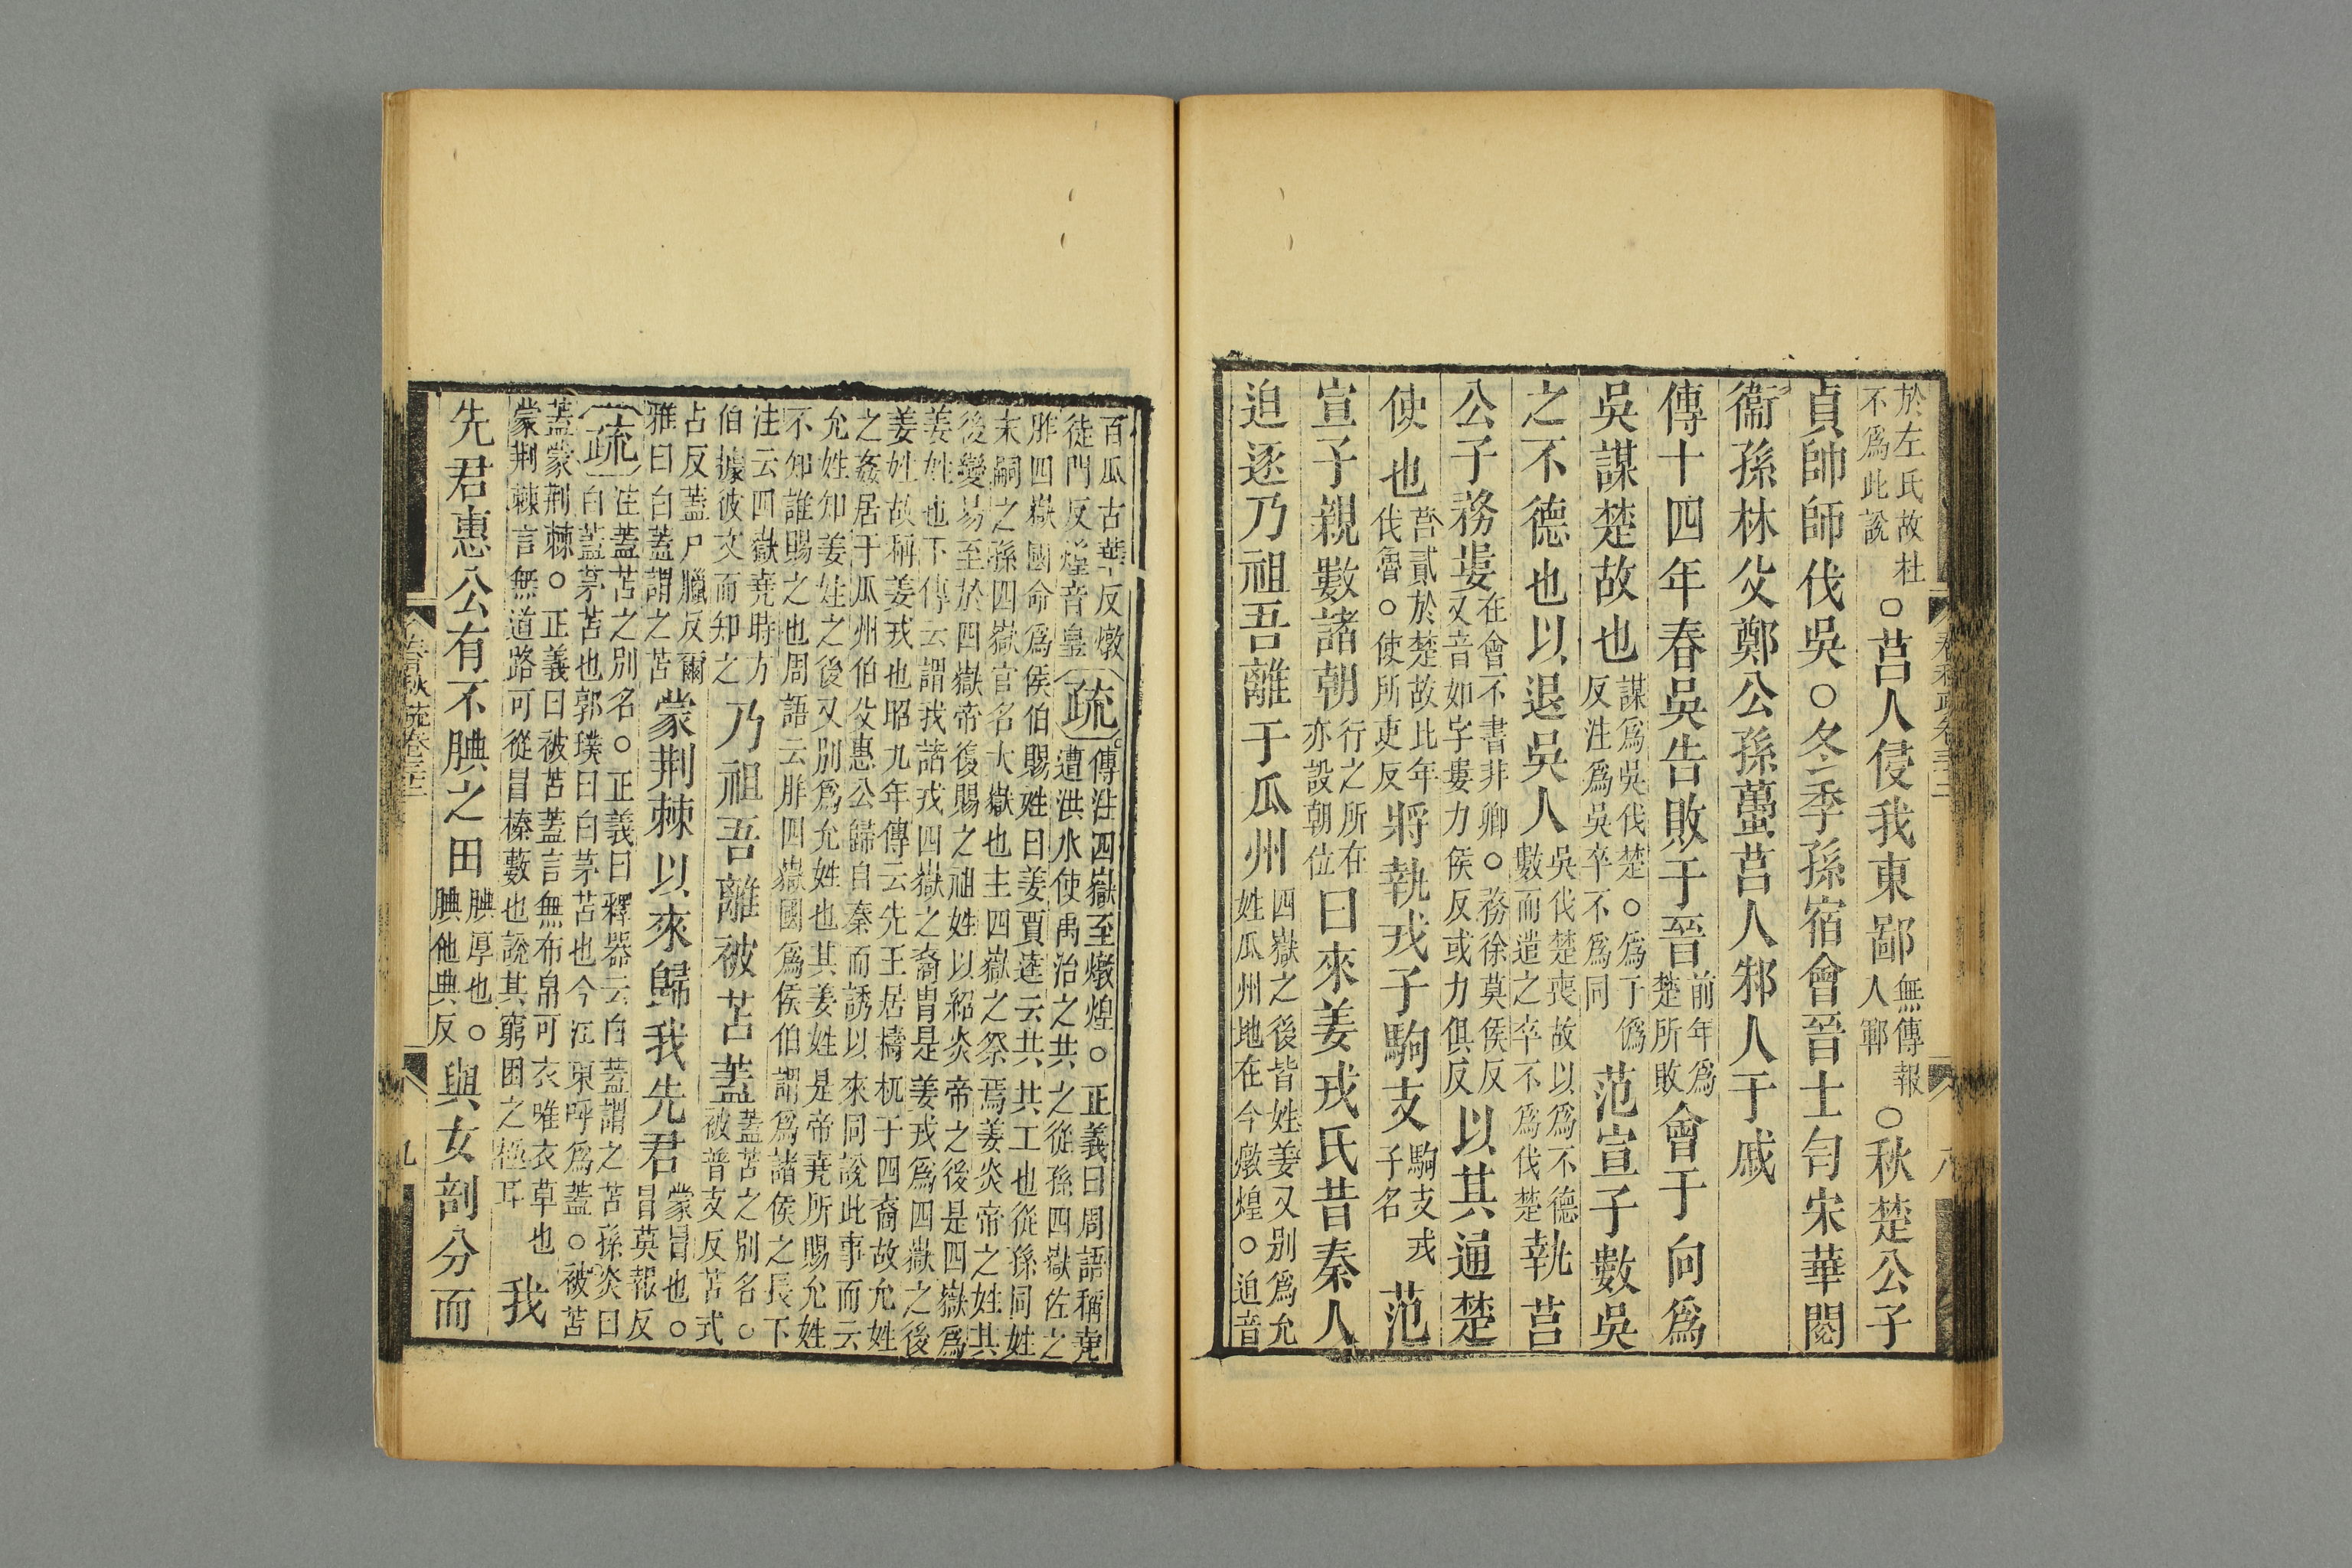 於左氏故杜
不爲此說
○莒人侵我東鄙
無傳報
人鄆
○秋楚公子
貞帥師伐吳○冬季孫宿會晉士匄宋華閱
衞孫林父鄭公孫蠆莒人邾人于戚
傳十四年春吳告敗于晉
前年爲
楚所敗
會于向爲
吳謀楚故也
謀爲吳伐楚○爲于僞
反注爲吳卒不爲同
范宣子數吳
之不德也以退吳人
吳伐楚喪故以爲不德
數而遣之卒不爲伐楚
執莒
公子務婁
在會不書非卿○務徐莫侯反
又音如字婁力侯反或力俱反
以其通楚
使也
莒貳於楚故比年
伐魯○使所吏反
將執戎子駒支
駒支戎
子名
范
宣子親數諸朝
行之所在
亦設朝位
曰來姜戎氏昔秦人
迫逐乃祖吾離于瓜州
四嶽之後皆姓姜又別爲允
姓瓜州地在今燉煌○迫音
春秋疏卷三十二
八
百瓜古華反燉
徒門反煌音皇
疏
傳注四嶽至燉煌○正義曰周語稱堯
遭洪水使禹治之共之從孫四嶽佐之
胙四嶽國命爲侯伯賜姓曰姜賈逵云共共工也從孫同姓
末嗣之孫四嶽官名大嶽也主四嶽之祭焉姜炎帝之姓其
後變易至於四嶽帝復賜之祖姓以紹炎帝之後是四嶽爲
姜姓也下傳云謂我諸戎四嶽之裔胄是姜戎爲四嶽之後
姜姓故稱姜戎也昭九年傳云先王居檮杌于四裔故允姓
之姦居于瓜州伯父惠公歸自秦而誘以來同說此事而云
允姓知姜姓之後又別爲允姓也其姜姓是帝堯所賜允姓
不知誰賜之也周語云胙四嶽國爲侯伯謂爲諸侯之長下
注云四嶽堯時方
伯據彼文而知之
乃祖吾離被苫蓋
蓋苫之別名○
被普支反苫式
占反蓋尸臘反爾
雅曰白蓋謂之苫
蒙荆棘以來歸我先君
蒙冒也○
冒莫報反
疏
注蓋苫之別名○正義曰釋器云白蓋謂之苫孫炎曰
白蓋茅苫也郭璞曰白茅苫也今江東呼爲蓋○被苫
蓋蒙荆棘○正義曰被苫蓋言無布帛可衣唯衣草也
蒙荆棘言無道路可從冒榛藪也說其窮困之極耳
我
先君惠公有不腆之田
腆厚也○
腆他典反
與女剖分而
春秋疏卷三十二
九